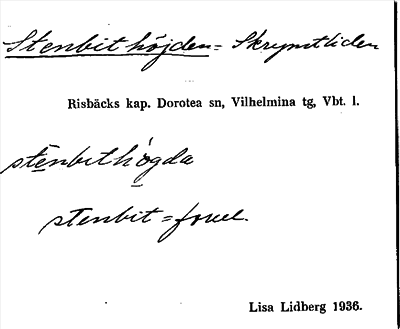 Stenbithöjden = Skrymtliden
Risbäcks kap. Dorotea sn, Vilhelmina tg, Vbt. l.
stenbithögda
stenbit =
Lisa Lidberg 1936.